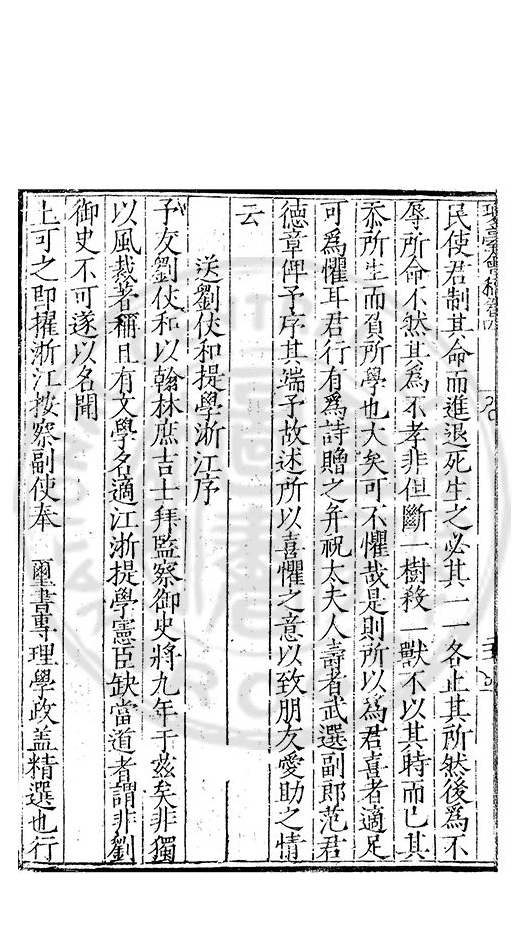 民使君制其命而進退死生之必其一一各止其所然後為不
辱所命不然其為不孝非但斷一樹殺一獸不以其時而已其
忝所生而負所學也大矣可不懼哉是則所以為君喜者適足
可為懼耳君行有為詩贈之并祝太夫人壽者武選副郎范君
德章俾予序其端予故述所以喜懼之意以致朋友愛助之情
云
送劉伕和提學浙江序
予友劉伕和以翰林庶吉士拜監察御史將九年于茲矣非獨
以風裁著稱且有文學名適江浙提學憲臣缺當道者謂非劉
御史不可遂以名聞
上可之即擢浙江按察副使奉 璽書專理學政盖精選也行